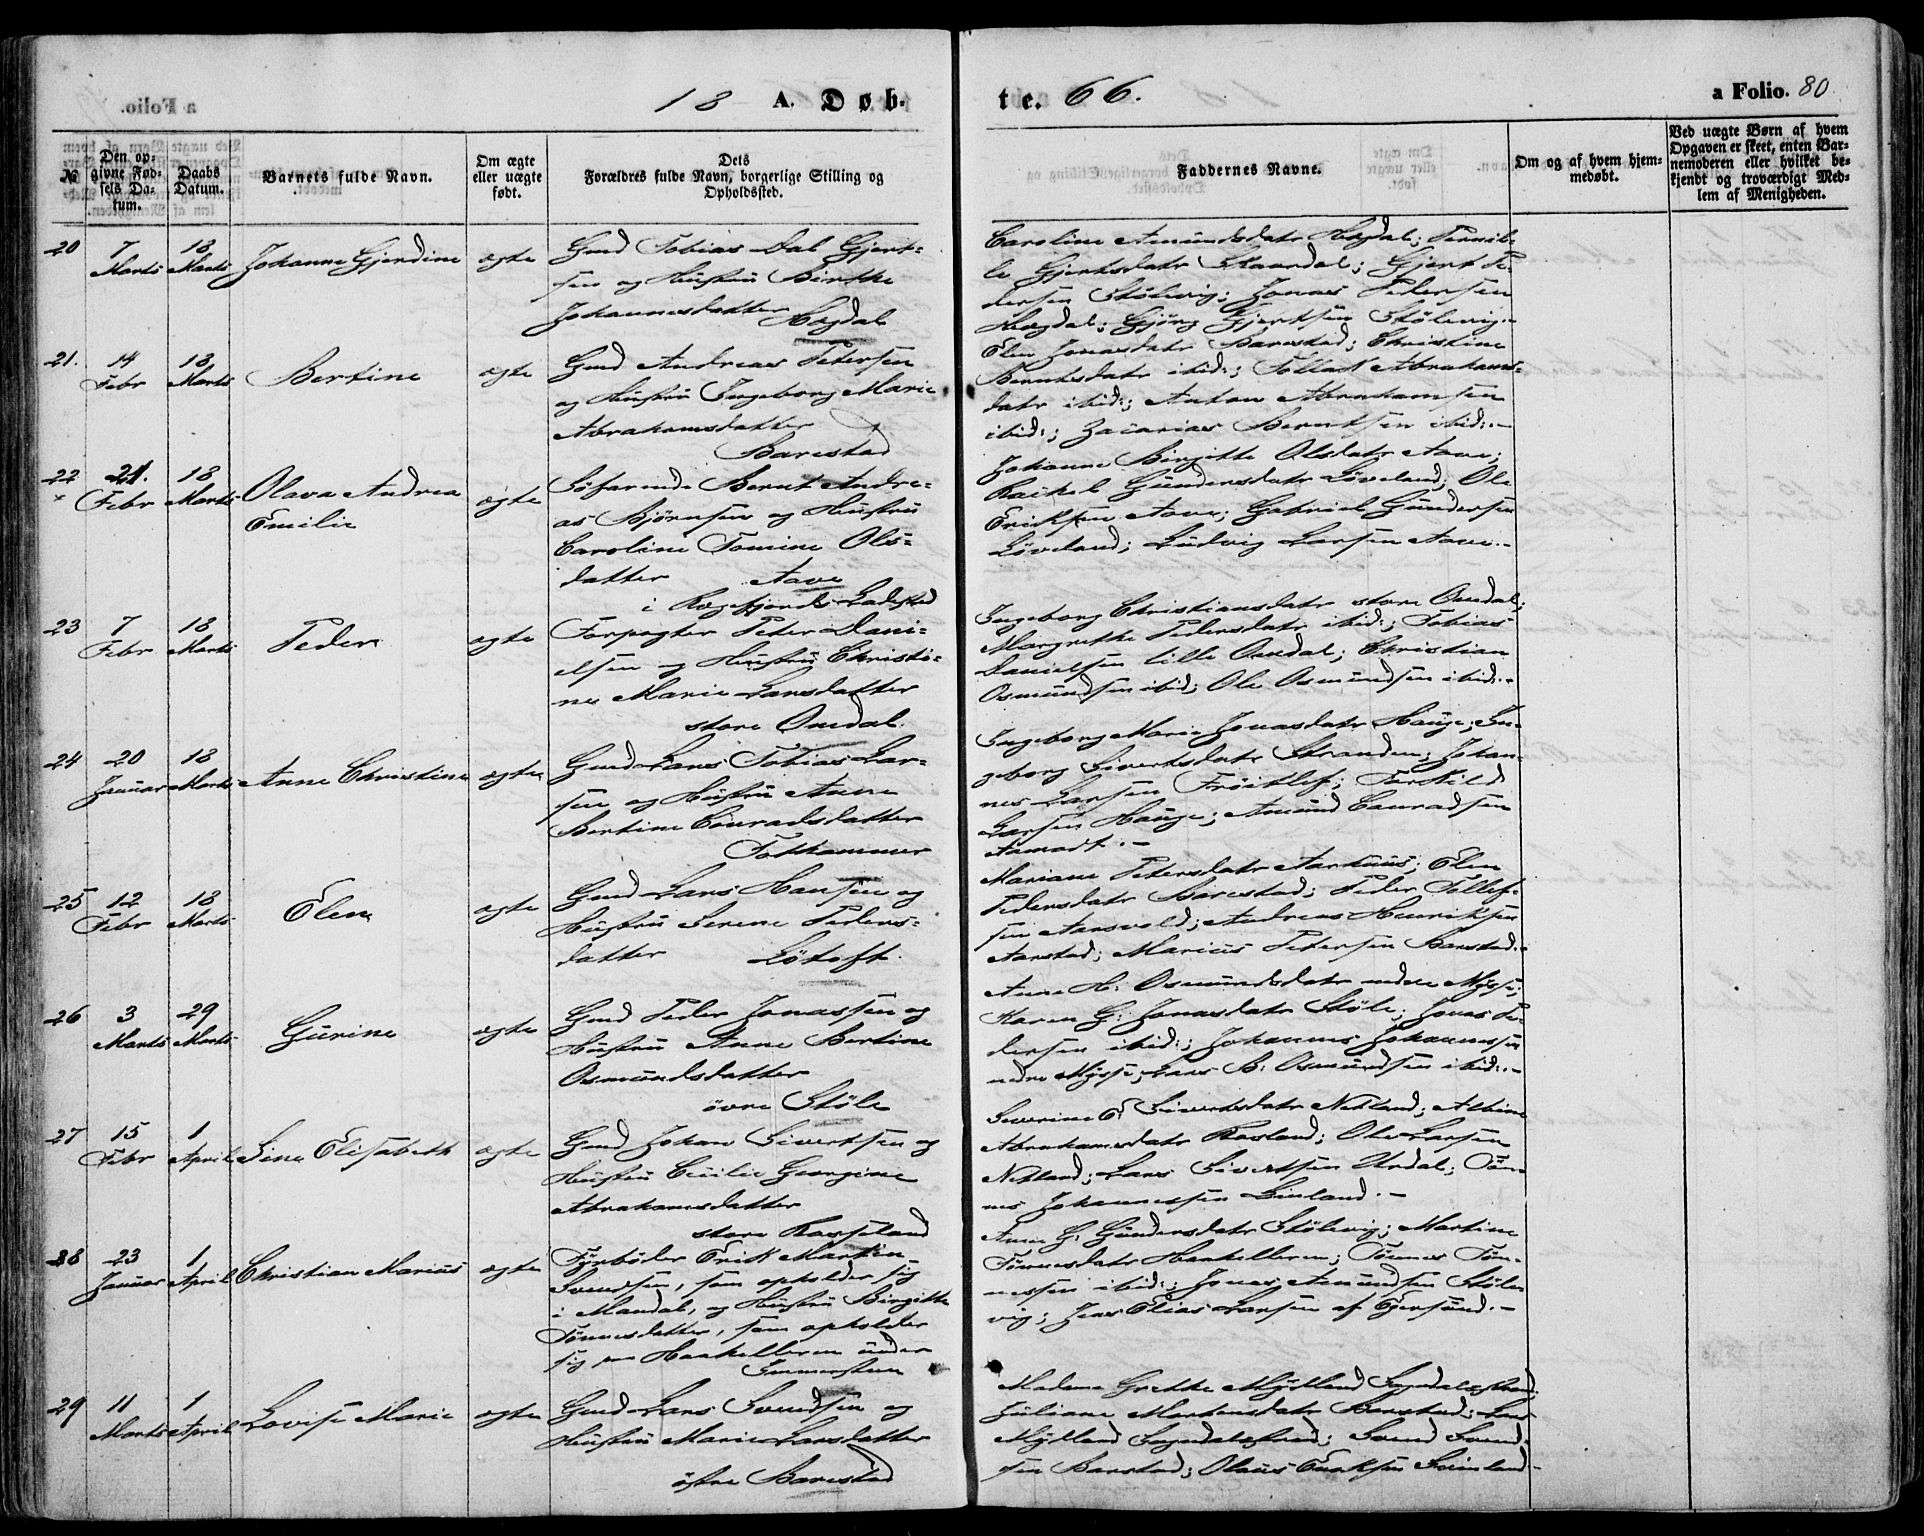 18 A. Døb-
te. 66.
a Folio. 80
№
Den op-
givne Fød-
sels Da-
tum.
Daabs
Datum.
Barnets fulde Navn.
Om ægte
eller uægte
født.
Dets
Forældres fulde Navn, borgerlige Stilling og
Opholdssted.
Faddernes Navne.
Om og af hvem hjem-
medøbt.
Ved uægte Børn af hvem
Opgaven er skeet, enten Bar-
nemoderen eller hvilket be-
kjendt og troværdigt Med-
lem af Menigheden.
20
7 Marts
18 Marts
Johanne Gjerdine
ægte
Gmd Tobias Dal Gjert-
sen og Hustru Birthe
Johannesdatter
Hægdal
Caroline Amundsdatr Hægdal; Pernil-
le Gjertsdatr Skaardal; Gjert Pe-
dersen Stølevig; Jonas Pedersen
Hægdal; Gjørg Gjertsen Stølevig.-
21.
14 Febr
18 Marts
Bertine
ægte
Gmd Andreas Petersen
og Hustru Ingeborg Marie
Abrahamsdatter
Barestad
Elen Jonasdatr Barestad; Christine
Berntsdatr ibid:; Abrahams-
datr ibid:; Anton Abrahamsen
ibid:; Zacarias Berntsen ibid:.-
22
21. Febr
18 Marts
Olava Andrea
Emilie
ægte
Søfarende Bernt Andre-
as Bjørnsen og Hustru
Caroline Tomine Ols-
datter Aave
i Rægefjords Ladested
Johanne Birgitte Olsdatr Aave;
Rachel Gundersdatr Løveland; Ole
Eriksen Aave; Gabriel Gundersen
Løveland; Ludvig Larsen Aave.-
23
7 Febr
18 Marts
Peder
ægte
Forpagter Peter Dani-
elsen og Hustru Christi-
ne Marie Larsdatter
store Omdal.
Ingeborg Christiansdatr store Omdal;
Margrethe Pedersdatr ibid:; Tobias
Danielsen lille Omdal; Christian
Osmundsen ibid; Ole Osmundsen ibid:.-
24
20 Januar
18 Marts
Anne Christine
ægte
Gmd Lars Tobias Lar-
sen og Hustru Anne
Bertine Conradsdatter
Fotkammer
Ingeborg Marie Jonasdatr Hauge; In-
geborg Sivertsdatr Stranden; Johan-
nes Larsen Frøitlof; Terkild
Larsen Hauge; Amund Conradsen
Aamodt.-
25
12 Febr
18 Marts
Elen
ægte
Gmd Lars Hansen og
Hustru Serene Peders-
datter Løtoft.
Mariane Petersdatr Aarhuus; Elen
Pedersdatr Barestad; Peder Tollef-
sen Aarsvold; Andreas Henriksen
Aarstad; Marius Petersen Barstad.-
26
3 Marts
29 Marts
Gurine
ægte
Gmd Peder Jonassen og
Hustru Anne Bertine
Osmundsdatter
øvre Støle
Anne H: Osmundsdatr nedre Mysse;
Karen G: Jonasdatr Støle; Jonas Pe-
dersen ibid:; Johannes Johannessen
nedre Mysse; Lars B: Osmundsen ibid:.-
27
15 Febr
1 April
Sine Elisabeth
ægte
Gmd Johan Sivertsen og
Hustru Cecilie Georgine
Abrahamsdatter
store Rosseland
Severine E: Sivertsdatr Netland; Albine
Abrahamsdatr Rosland; Ole Larsen
Netland; Lars Sivertsen Urdal; Tøn-
nes Johannessen Linland.-
28
23 Januar
1 April
Christian Marius
ægte
Fyrbøder Erik Martin
Svendsen, som opholder sig
i Mandal, og Hustru Birgitte
Tønnesdatter, som opholder
sig paa Haakelleren under
Immerstein
Anne G: Gundersdatr Stølevig; Martine
Tønnesdatr Haakelleren; Tønnes Tøn-
nessen ibid:; Jonas Amundsen Støle-
vig; Jens Elias Larsen af Egersund.-
29
11 Marts
1 April
Lovise Marie
ægte
Gmd Lars Svendsen og
Hustru Marie Larsdatter
østre Barestad
Madame Grethe Mydland Sogndalsstrand;
Juliane Mortensdatr Barstad; Lars
Mydland Sogndalsstrand; Svend Svend-
sen Barstad; Olaus